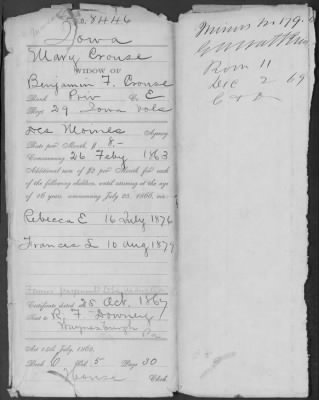 No. 8446
Iowa
Mary Crouse
WIDOW OF
Benjamin F. Crouse
Rank Priv Co. E
Reg't 29 Iowa Vols
Des Moines Agency
Rate per Month, $ 8,-
Commencing 26 Feby 1863
Additional sum of $2 per Month for each
of the following children, until arriving at the age
of 16 years, commencing July 25, 1866, viz:
Rebecca E 16 July 1876
Frances L 10 Aug 1879
Former payments to be deducted
Certificate dated 25 Oct. 1867
Sent to R. F. Downey
Waynesburgh
Pa
Act 14th July, 1862.
Book 6 Vol. 5 Page 30
Clerk.
Room 11
Dec 2 69